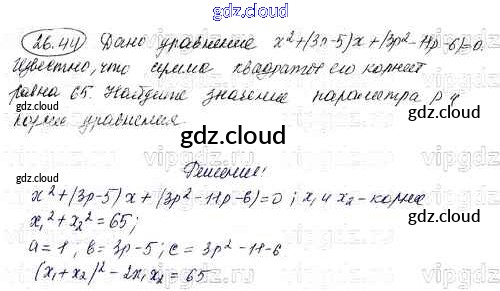 gdz.cloud
26.44 Дано уравнение x²+(3p-5)x+(3p²-11p-6)=0.
Известно, что сумма квадратов его корней
равна 65. Найдите значение параметра p и
корни уравнения.
gdz.cloud
gdz.cloud
Решение:
x²+(3p-5)x+(3p²-11p-6)=0; x₁ и x₂-корни
x₁²+x₂²=65;
a=1; b=3p-5; c=3p²-11-6
(x₁+x₂)²-2x₁x₂=65
gdz.cloud
gdz.cloud